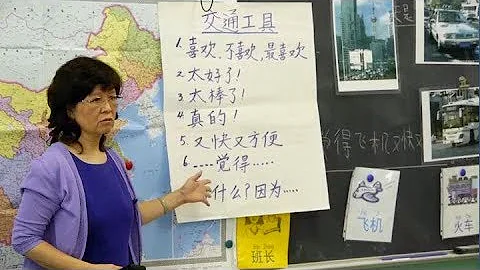 交通工具
1. 喜欢、不喜欢, 最喜欢
2. 太好了!
3. 太棒了!
4. 真的!
5. 又快又方便
6. ----觉得.....
什么? 因为.....
觉得飞机又快又
飞机
火车
班长